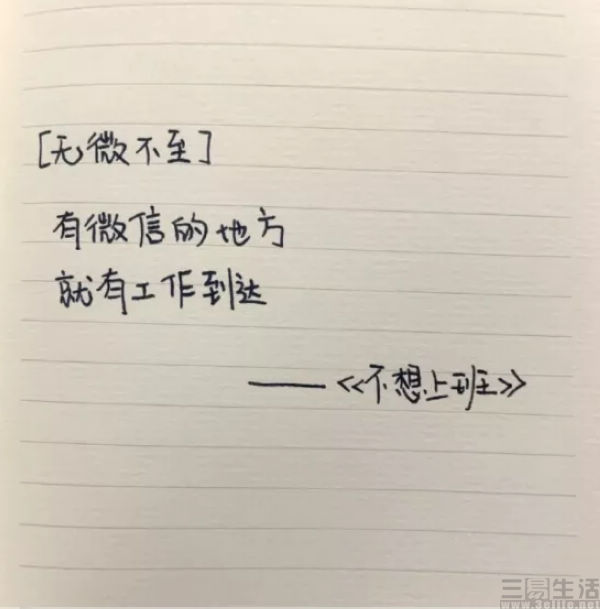 [无微不至]
有微信的地方
就有工作到达
——《不想上班》
三易生活
www.3elife.net